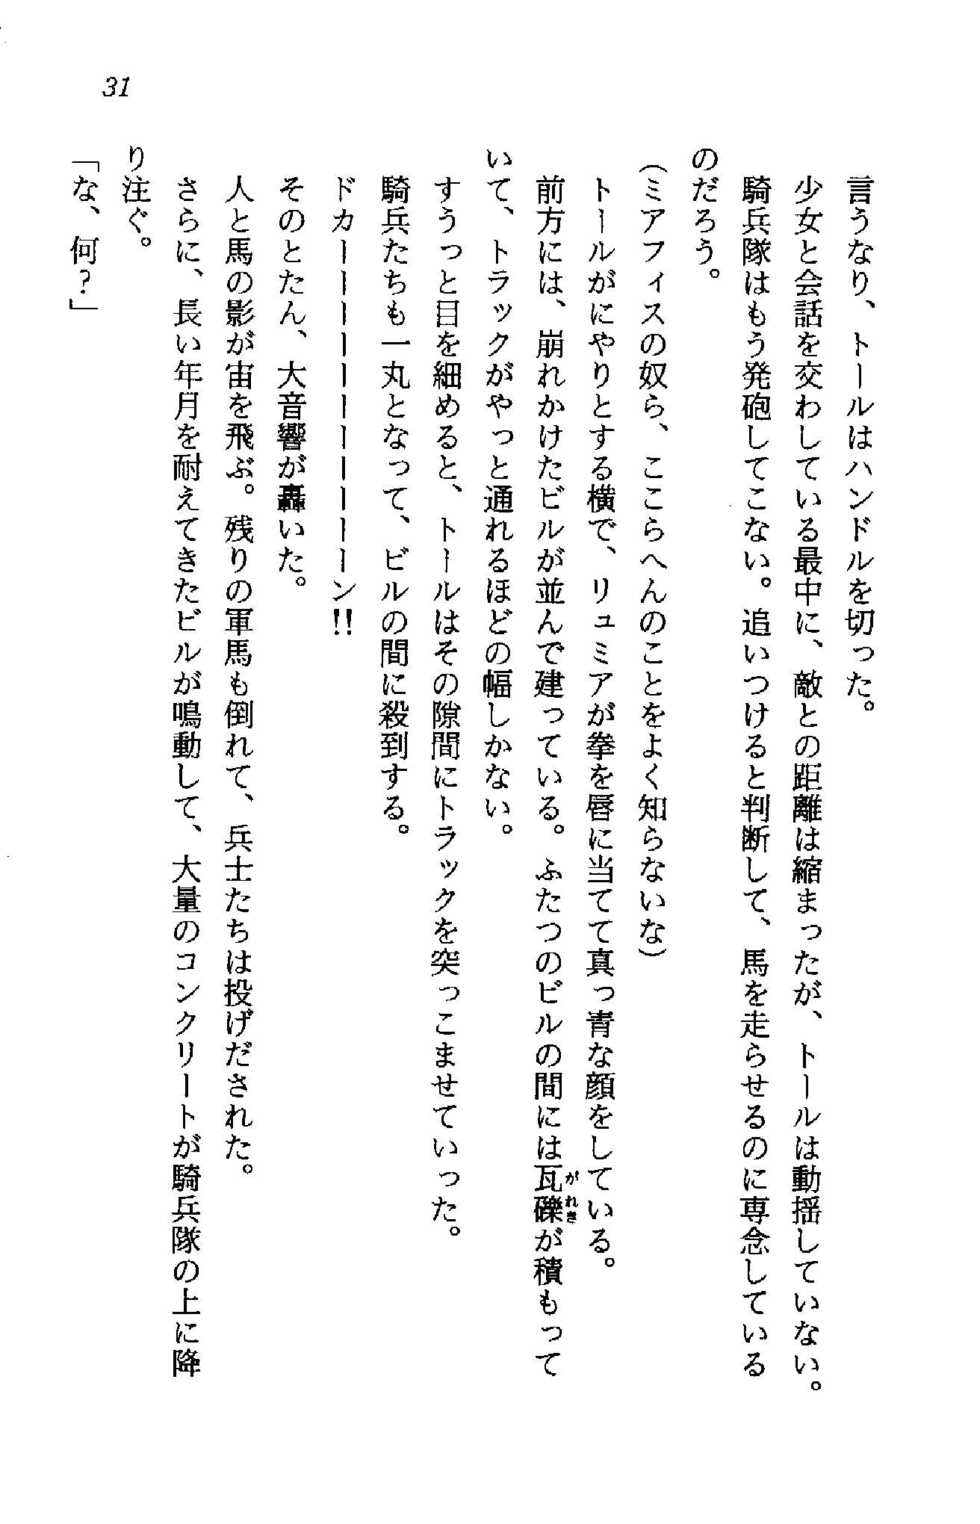 31
言うなり、トールはハンドルを切った。
少女と会話を交わしている最中に、敵との距離は縮まったが、トールは動揺していない。
騎兵隊はもう発砲してこない。追いつけると判断して、馬を走らせるのに専念している
のだろう。
(ミアフィスの奴ら、ここらへんのことをよく知らないな)
トールがにやりとする横で、リュミアが拳を唇に当てて真っ青な顔をしている。
前方には、崩れかけたビルが並んで建っている。ふたつのビルの間には瓦礫が積もって
がれき
いて、トラックがやっと通れるほどの幅しかない。
すうっと目を細めると、トールはその隙間にトラックを突っこませていった。
騎兵たちも一丸となって、ビルの間に殺到する。
ドカーーーーーーーーーーン!!
そのとたん、大音響が轟いた。
人と馬の影が宙を飛ぶ。残りの軍馬も倒れて、兵士たちは投げだされた。
さらに、長い年月を耐えてきたビルが鳴動して、大量のコンクリートが騎兵隊の上に降
り注ぐ。
「な、何?」